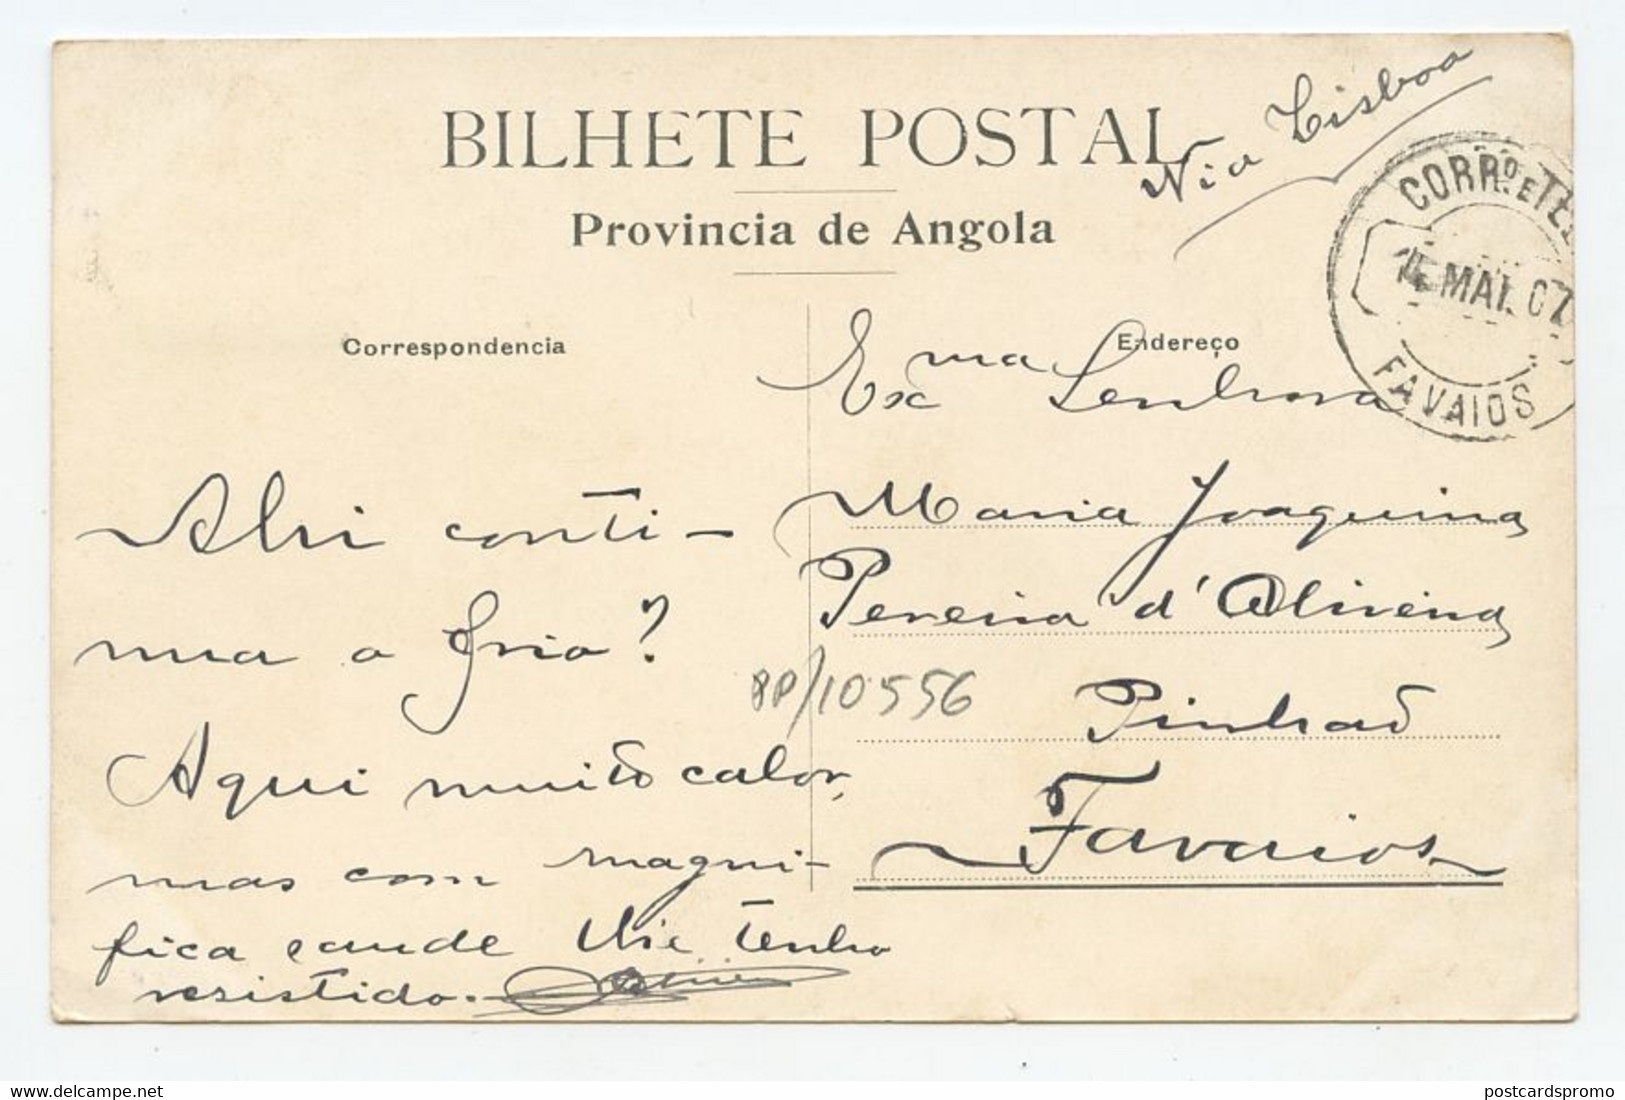 BILHETE POSTAL
Provincia de Angola
Via Lisboa
CORRº E TEL
MAI. 07
FAVAIOS
Correspondencia
Ahi conti-
nua o frio?
Aqui muito calor,
mas com magni-
fica saude lhe tenho
resistido.
Endereço
Exma Senhora
Maria Joaquina
Pereira d'Oliveira
Pinhaõ
Favaios
PP/10556
delcampe.net
postcardspromo